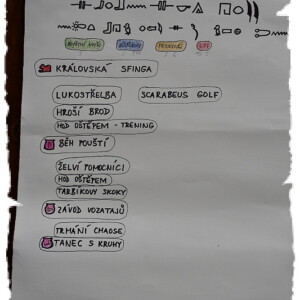 KRÁLOVSKÁ SFINGA
LUKOSTŘELBA SCARABEUS GOLF
HROŠÍ BROD
HOD OŠTĚPEM - TRENING
BĚH POUŠTÍ
ŽELVÍ POMOCNÍCI
HOD OŠTĚPEM
TARBÍKOVY SKOKY
ZÁVOD VOZATAJŮ
TANEC S KRUHY